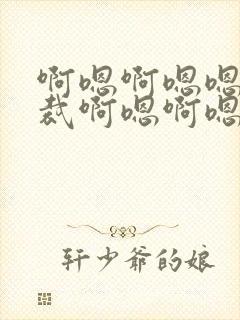 啊嗯啊嗯嗯
裁啊嗯啊嗯
轩少爷的娘